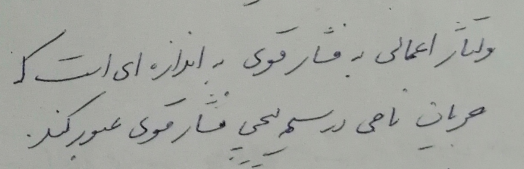 ولتاژ اعمالی به فشار قوی به اندازه ای است که
جریان نامی در سیم پیچی فشار قوی عبور کند.